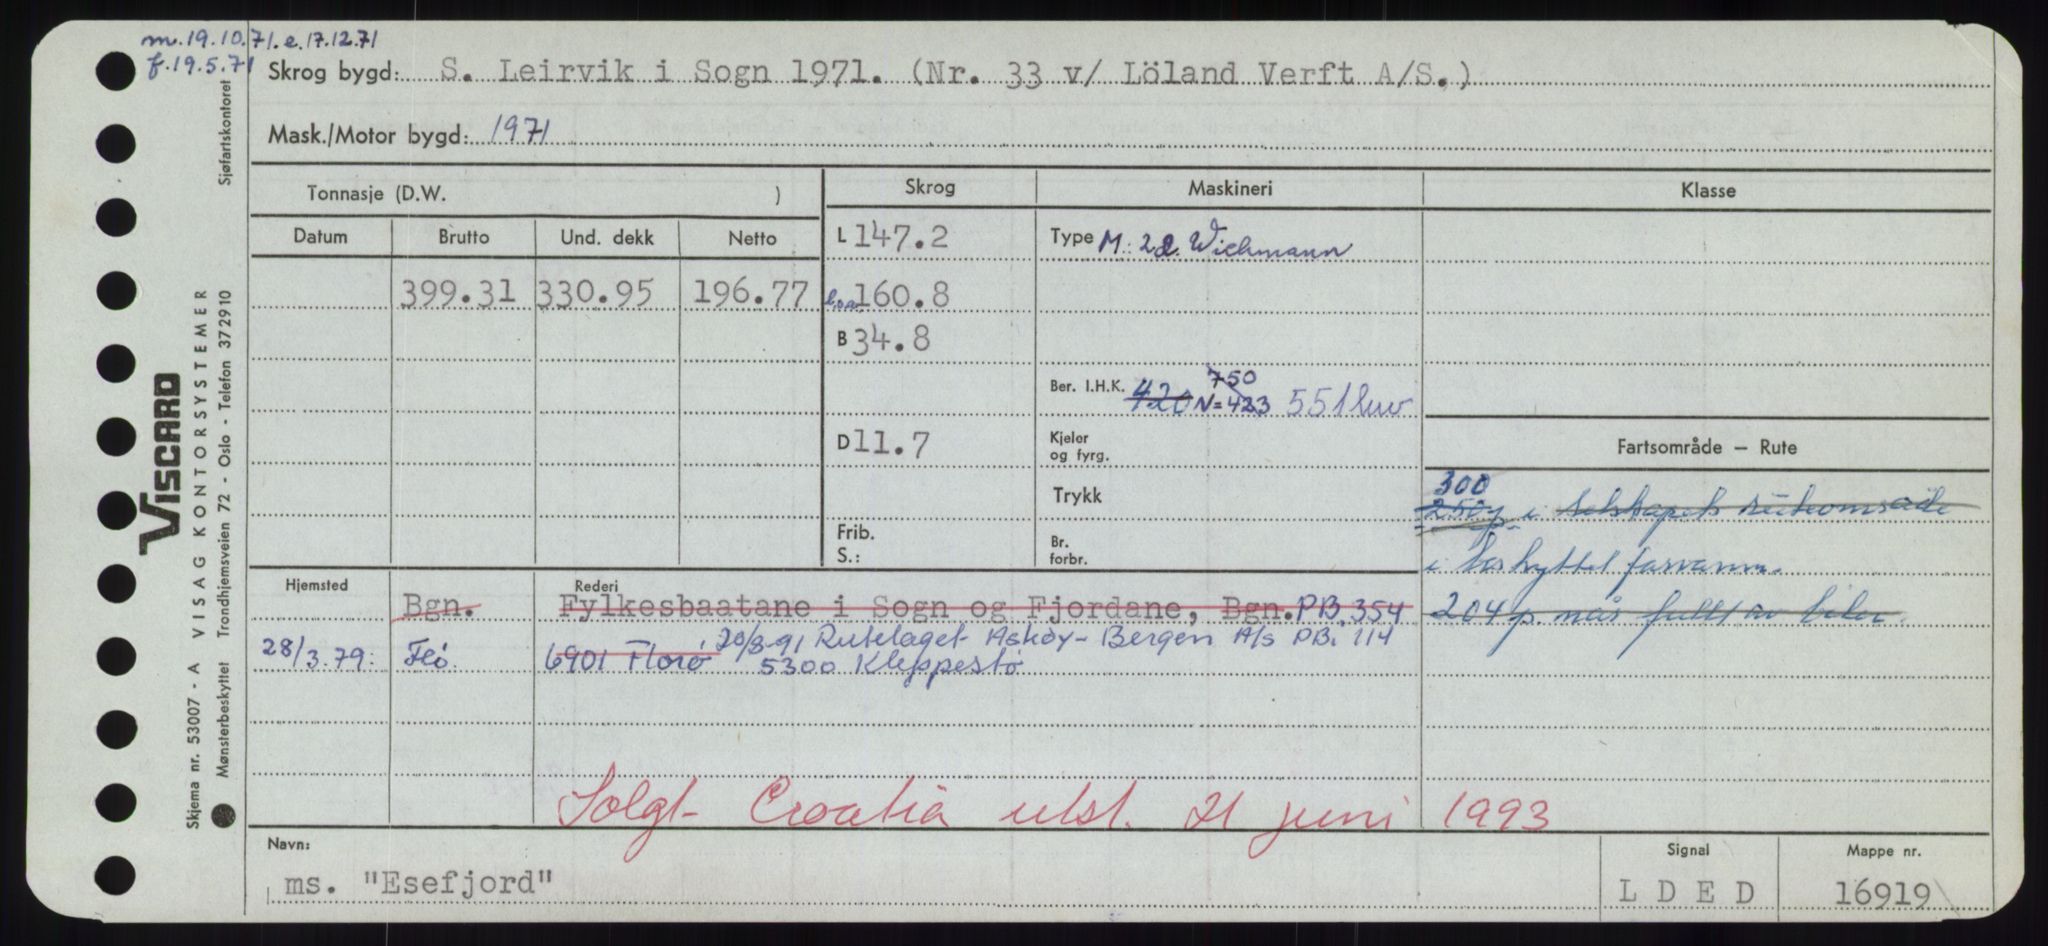 m.19.10.71. e.17.12.71
f.19.5.71
Skrog bygd: S. Leirvik i Sogn 1971. (Nr. 33 v/ Löland Verft A/S.)
Mask./Motor bygd: 1971
Tonnasje (D.W. )
Skrog
Maskineri
Klasse
Datum
Brutto
Und. dekk
Netto
L 147.2
Type M: 2 Wichmann
399.31
330.95
196.77
l.o.a. 160.8
B 34.8
750
Ber. I.H.K. 420 N=423 551 kw
D 11.7
Kjeler
og fyrg.
Fartsområde – Rute
Trykk
300
250 p i selskapets ruteområde
Frib.
S.:
Br.
forbr.
i beskyttet farvann.
Hjemsted
Rederi
Bgn.
Fylkesbaatane i Sogn og Fjordane, Bgn. PB. 354
204 p når fullt av biler.
28/3.79: Flö. 6901 Florø 20/8-91 Rutelaget Askøy-Bergen A/s PB. 114
5300 Kleppestø
Solgt Croatia utst. 21 juni 1993
Navn:
ms. "Esefjord"
Signal
LDED
Mappe nr.
16919
VISCARD
VISAG KONTORSYSTEMER
Skjema nr. 53007 - A
Mønsterbeskyttet Trondhjemsveien 72 - Oslo - Telefon 372910
Sjøfartskontoret